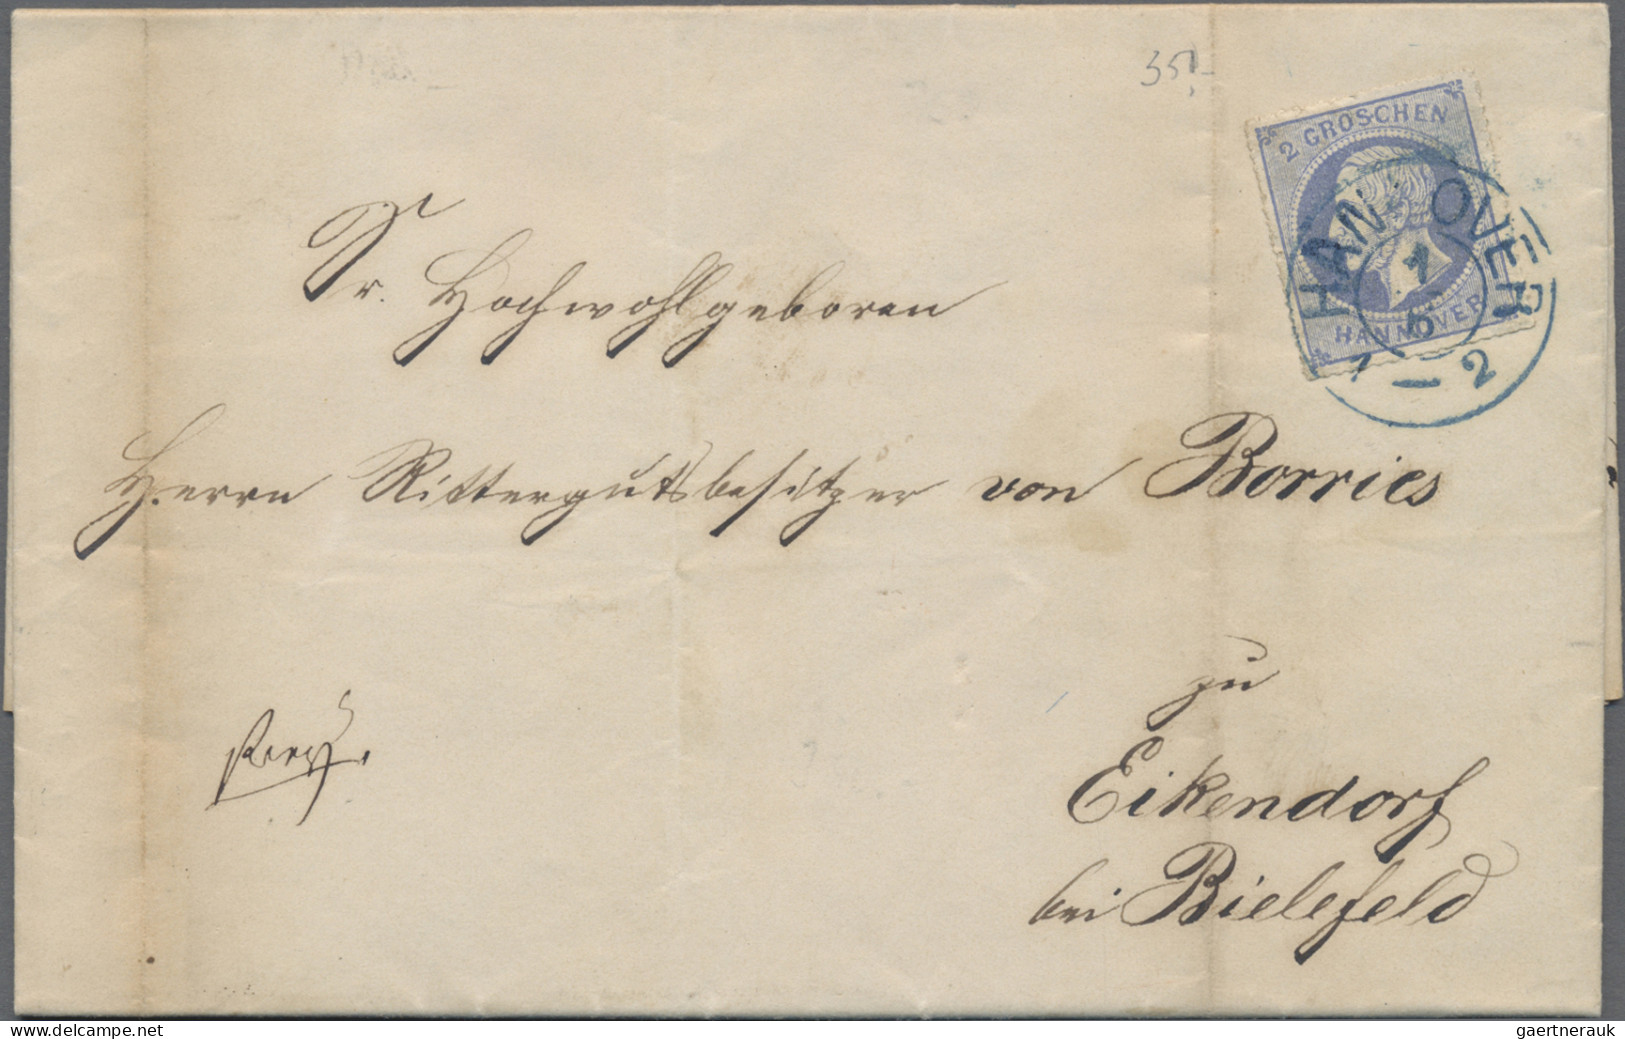 35,-
2 GROSCHEN
HANNOVER
HANNOVER
7
6
1 - 2
Sr. Hochwohlgeboren
Herrn Rittergutsbesitzer von Borries
zu
Eikendorf
bei Bielefeld
www.delcampe.net
gaertnerauk